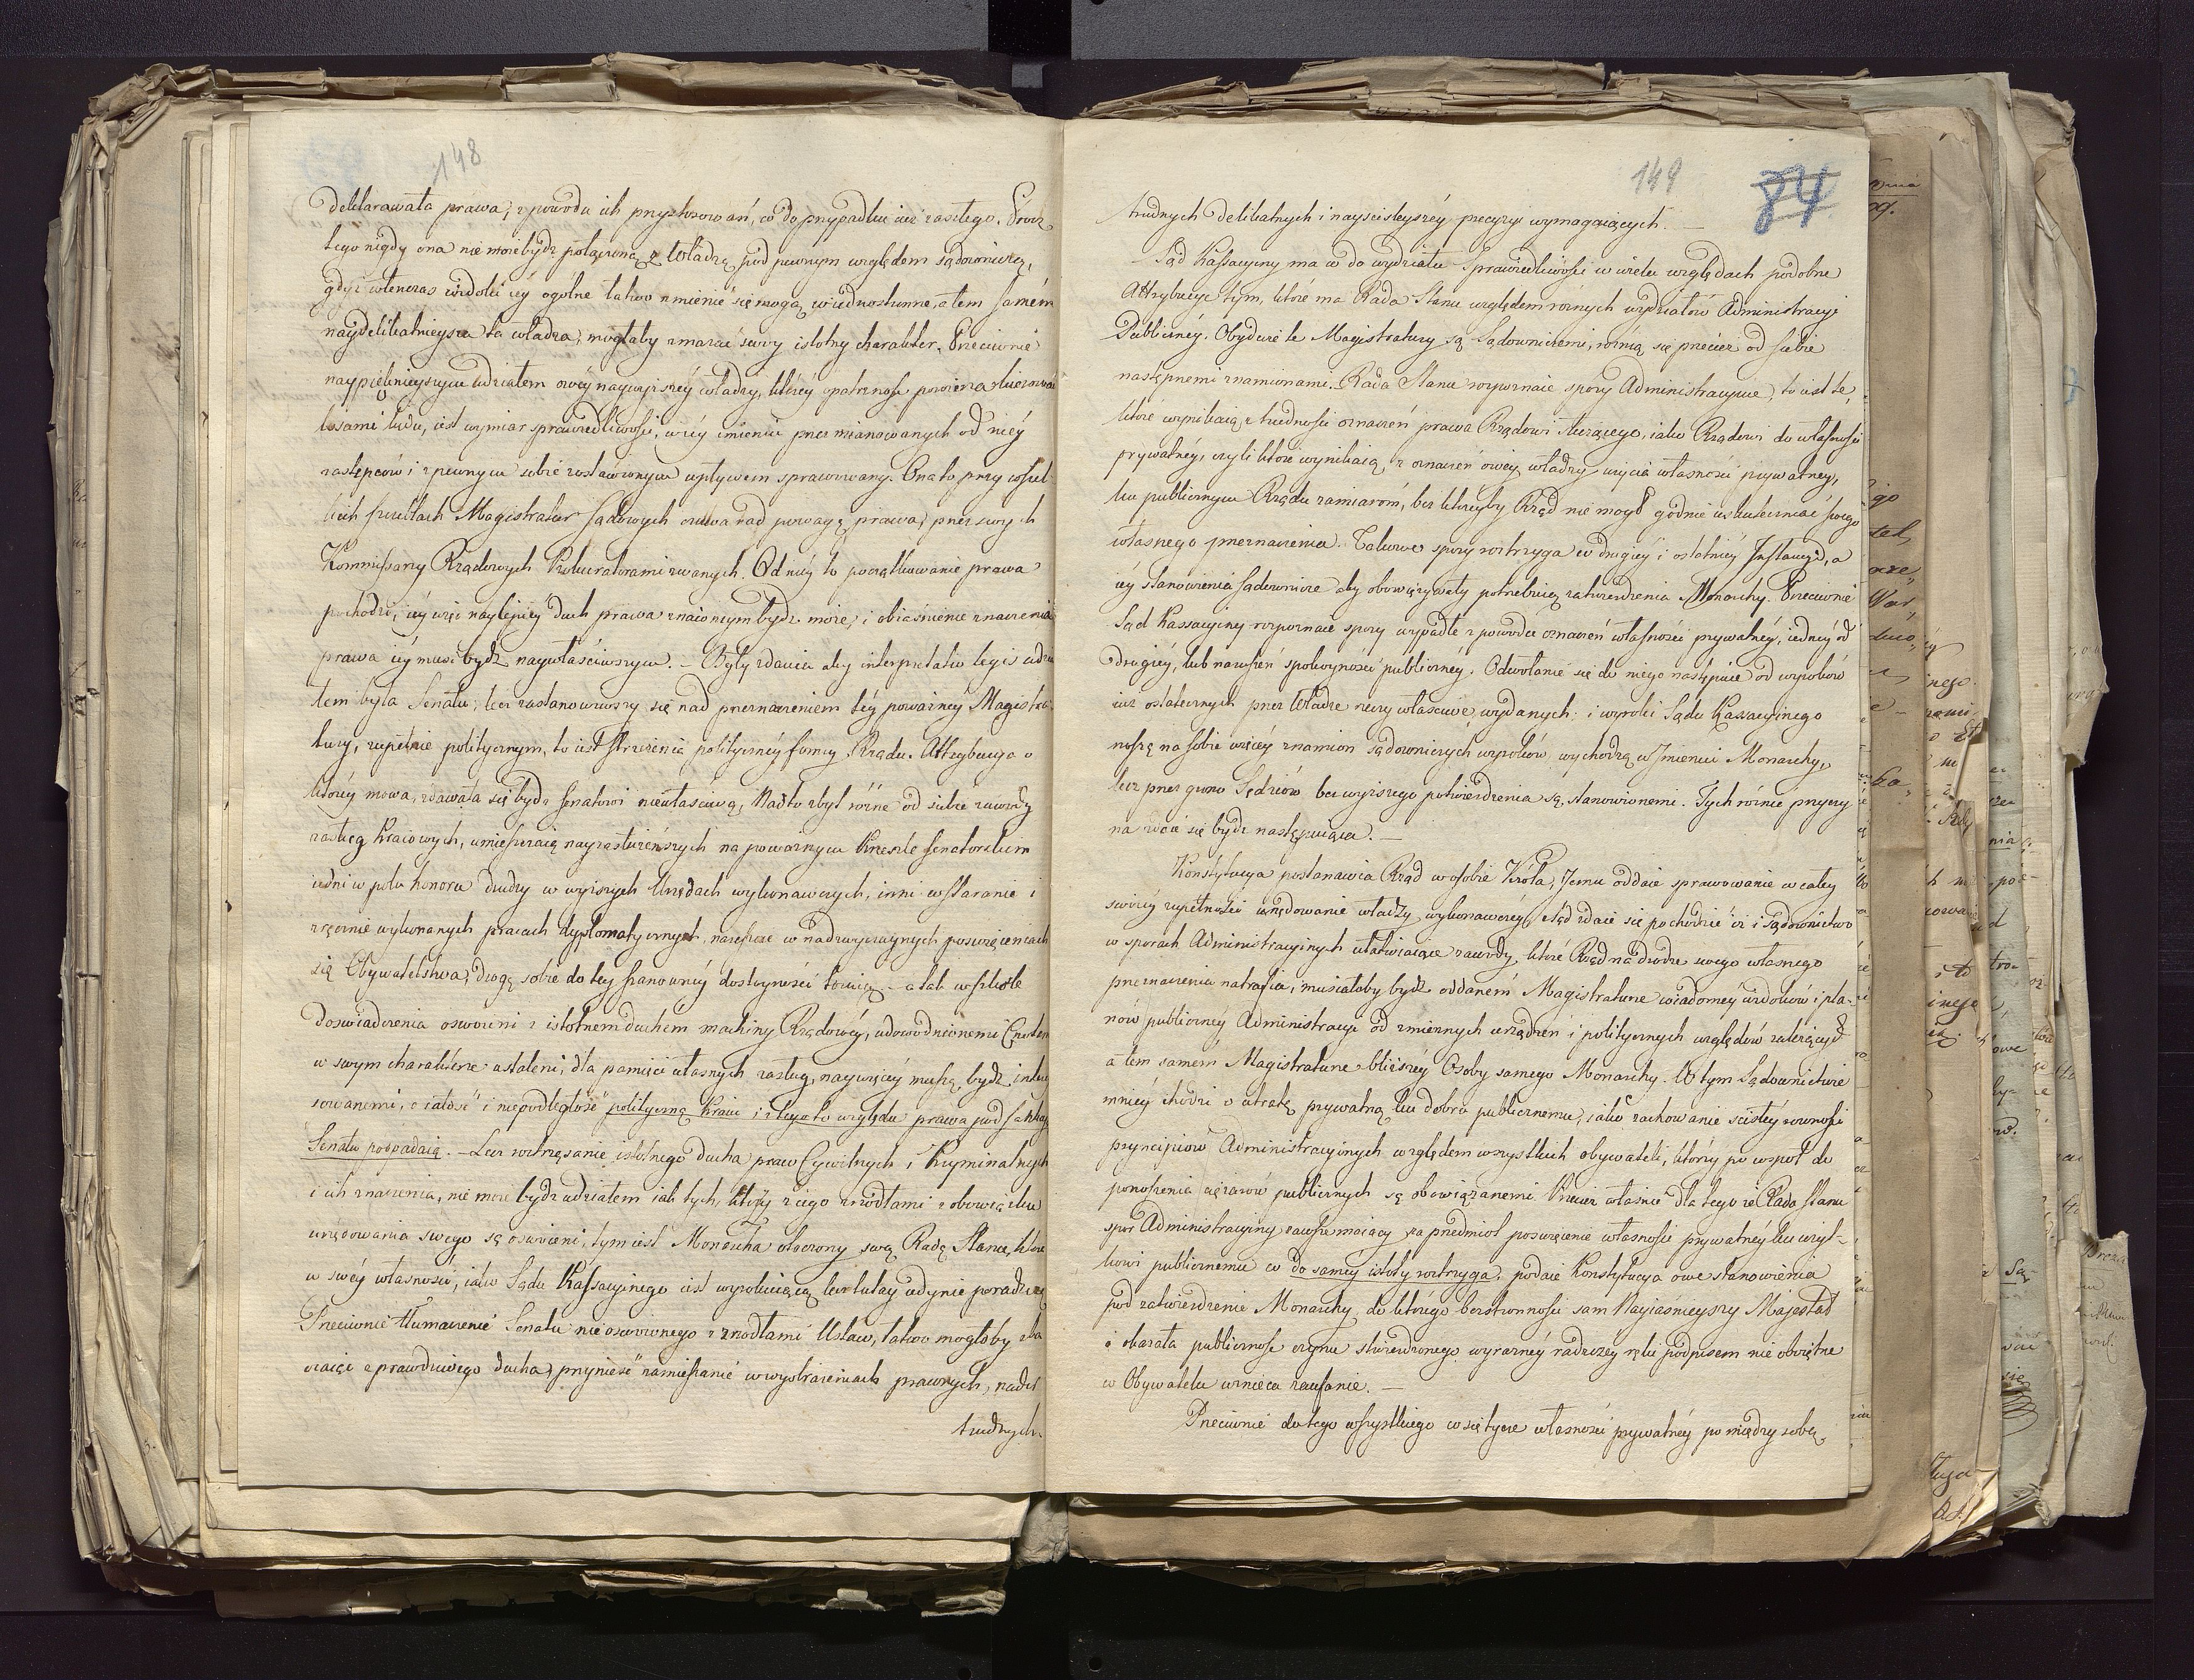 148
deklarawała prawa, z powodu ich przystosowań, co do przypadku iuż zaszłego. Procz
tego nigdy ona nie może bydź połączoną z Władzą pod pewnym względem sądowniczą,
gdyż wtenczas widoki iéy ogólne łatwo zmienić się mogą w iednostronne, a tem samém
naydelikatnieysza ta władza, mogłaby zmazać swóy istotny charakter. Przeciwnie
naypięknieyszym udziałem owéy naywyższéy władzy, któréy opatrzność powierza kierować
losami ludu, iest wymiar sprawiedliwości, w iéy imieniu przez mianowanych od niéy
zastępców i z pewnym sobie zostawionym wpływem sprawowany. Ona to przy wszel-
kich szczeblach Magistratur sądowych czuwa nad powagą prawa, przez swych
Kommissarzy Rządowych Prokuratorami zwanych. Od niéy to początkowanie prawa
pochodzi, iéy więc naylepiéy duch prawa znaiomym bydź może, i obiaśnienie znaczenia
prawa iéy musi bydź naywłaściwszym. – Były zdania aby interpretatio legis udzia
łem była Senatu, lecz zastanowiwszy się nad przeznaczeniem téy poważnéy Magistra-
tury, zupełnie politycznym, to iest strzeżenia politycznéy formy Rządu. Attrybucya o
któréy mowa, zdawała się bydź Senatowi niewłaściwą, Nadto zbyt różne od siebie zawody
zasług Kraiowych, umieszczaią nayzasłużeńszych na poważnym Krześle Senatorskim
iedni w polu honoru drudzy w wyższych Urzędach wykonawczych, inni w staranie i
zręcznie wykonanych pracach dyplomatycznych, nareszcie w nadzwyczaynych poswięceniach
się Obywatelstwa, drogę sobie do tey szanownéy dostoyności toruią – a tak w szkole
Doswiadczenia oswoieni z istotnem duchem machiny Rządowéy, udowodnionemi
w swym charakterze ustaleni, dla pamięci własnych zasług, naywięcéy muszą bydź intere
sowanemi, o całość i niepodległość polityczną Kraiu i z tego to względu prawa pod sankcyą
Senatu podpadaią. – Lecz roztrząsanie istotnego ducha praw Cywilnych i Kryminalnych
i ich znaczenia, nie może bydź udziałem iak tych, którzy z iego źrzodłami z obowiązku
urzędowania swego są oswoieni, tym iest Monarcha otoczony swą Radą Stanu, która
w swéy własności, iako Sądu Kassacyinego iest wyrokuiącą lecz tutay iedynie poradczą
Przeciwnie tłumaczenie Senatu nie oswoionego z zrzodłami Ustaw, łatwo mogłoby zba
czaiąc z prawdziwego ducha, przynieść zamieszanie w wyobrażeniach prawnych, nader
trudnych
149
84
trudnych delikatnych i nayscisleyszéy precyzyi wymagaiących. –
Sąd Kassacyiny ma co do wydziału Sprawiedliwości w wielu względach podobne
Attrybucye tym, które ma Rada Stanu względem różnych wydziałów Administracyi
Publicznéy. Obydwie te Magistratury są Sądowniczemi, różnią się przecież od siebie
następnemi znamionami. Rada Stanu rozpoznaie spory Administracyine, to iest te,
które wynikaią z trudności oznaczeń prawa Rządowi służącego, iako Rządowi do własności
prywatnéy, czyli które wynikaią, z oznaczeń owéy władzy użycia własności prywatney,
ku publicznym Rządu zamiarom, bez któréyby Rząd nie mogł godnie uskuteczniać swego
własnego przeznaczenia. Takowe spory roztrzyga w drugiéy i ostatniéy Instancyi, a
iéy stanowienia sądownicze aby obowiązywały potrzebuią zatwierdzenia Monarchy. Przeciwnie
Sąd Kassacyiny rozpoznaie spory wypadłe z powodu oznaczeń własności prywatnéy, iednéy od
drugiéy, lub naruszeń spokoyności publicznéy. Odwołanie się do niego następuie od wyroków
iuż ostatecznych przez Władze rzeczy właściwe, wydanych: i wyroki Sądu Kassacyinego
noszą na sobie więcéy znamion sądowniczych wyroków, wychodzą w Imieniu Monarchy,
lecz przez grono Sędziów bez wyższego potwierdzenia są stanowionemi. Tych różnic przyczy
na zdaie się bydź następuiąca. –
Konstytucya postanawia Rząd w osobie Króla, Jemu oddaie sprawowanie w całey
swoiéy zupełności urzędowanie władzy wykonawczéy, stąd zdaie się pochodzić iż i sądownictwo
w sporach Administracyinych ułatwiaiące zawody, które Rząd na drodze swego własnego
przeznaczenia natrafia, musiałoby bydź oddanem Magistraturze wiadomey widoków i pla-
nów publicznéy Administracyi od zmiennych urządzeń i politycznych względów zależących
a tem samem Magistraturze bliższéy Osoby samego Monarchy. W tym Sądownictwie
mniéy chodzi o utratę prywatną ku dobru publicznemu, iako zachowanie ścisłéy równości
pryncipiów Administracyinych względem wszystkich obywateli, którzy po wspoł do
ponoszenia ciężarów publicznych są obowiązanemi. Przecież właśnie dla tego że Rada Stanu
spór Administracyiny zawsze maiący za przedmiot poswięcenie własności prywatnéy ku użyt-
kowi publicznemu co do saméy istoty roztrzyga, podaie Konstytucya owe stanowienia
pod zatwierdzenie Monarchy, do którego bezstronności sam Nayiaśnieyszy Majestat
i okazała publiczność czynu stwierdzonego wyrażnéy radzczey ręki podpisem nie obojętne
w Obywatelu wznieca zaufanie. –
Przeciwnie do tego wszystkiego co się tycze własności prywatnéy pomiędzy sobą,